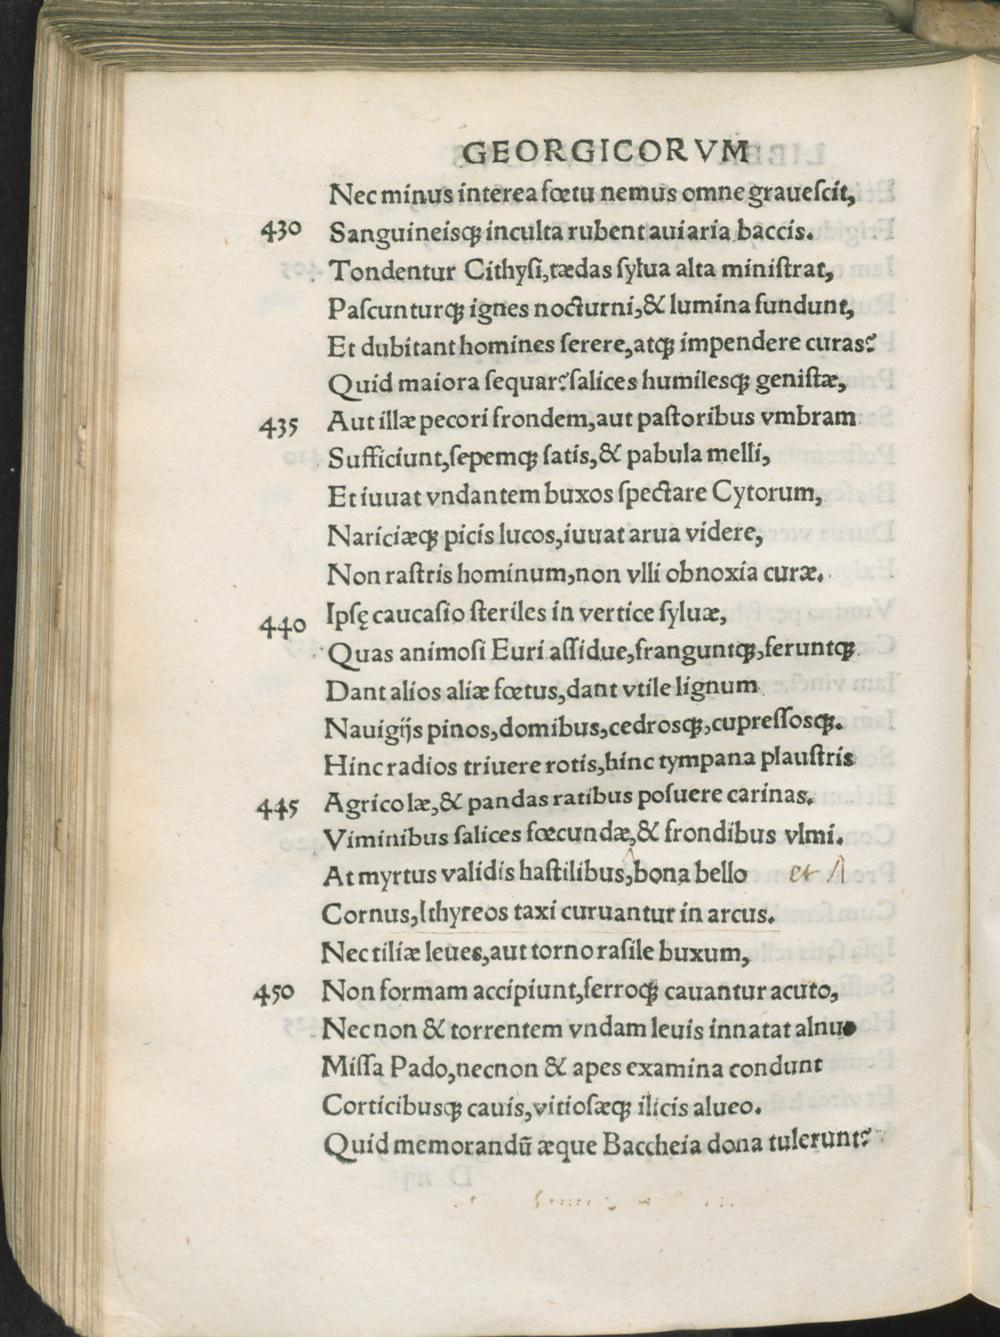 GEORGICORVM
Nec minus interea fœtu nemus omne graueſcit,
430 Sanguineisq; inculta rubent auiaria baccis.
Tondentur Cithyſi, tædas ſylua alta miniſtrat,
Paſcunturq; ignes nocturni, & lumina fundunt,
Et dubitant homines ſerere, atq; impendere curas?
Quid maiora ſequar? ſalices humilesq; geniſtæ,
435 Aut illæ pecori frondem, aut paſtoribus vmbram
Sufficiunt, ſepemq; ſatis, & pabula melli,
Et iuuat vndantem buxos ſpectare Cytorum,
Nariciæq; picis lucos, iuuat arua videre,
Non raſtris hominum, non vlli obnoxia curæ.
440 Ipſę caucaſio ſteriles in vertice ſyluæ,
Quas animoſi Euri aſſidue, franguntq;, feruntq;
Dant alios aliæ fœtus, dant vtile lignum
Nauigijs pinos, domibus, cedrosq;, cupreſſosq;.
Hinc radios triuere rotis, hinc tympana plauſtris
445 Agricolæ, & pandas ratibus poſuere carinas.
Viminibus ſalices fœcundæ, & frondibus vlmi.
At myrtus validis haſtilibus, bona bello et
Cornus, Ithyreos taxi curuantur in arcus.
Nec tiliæ leues, aut torno raſile buxum,
450 Non formam accipiunt, ferroq; cauantur acuto,
Necnon & torrentem vndam leuis innatat alnus
Miſſa Pado, necnon & apes examina condunt
Corticibusq; cauis, vitioſæq; ilicis alueo.
Quid memorandū æque Baccheia dona tulerunt?